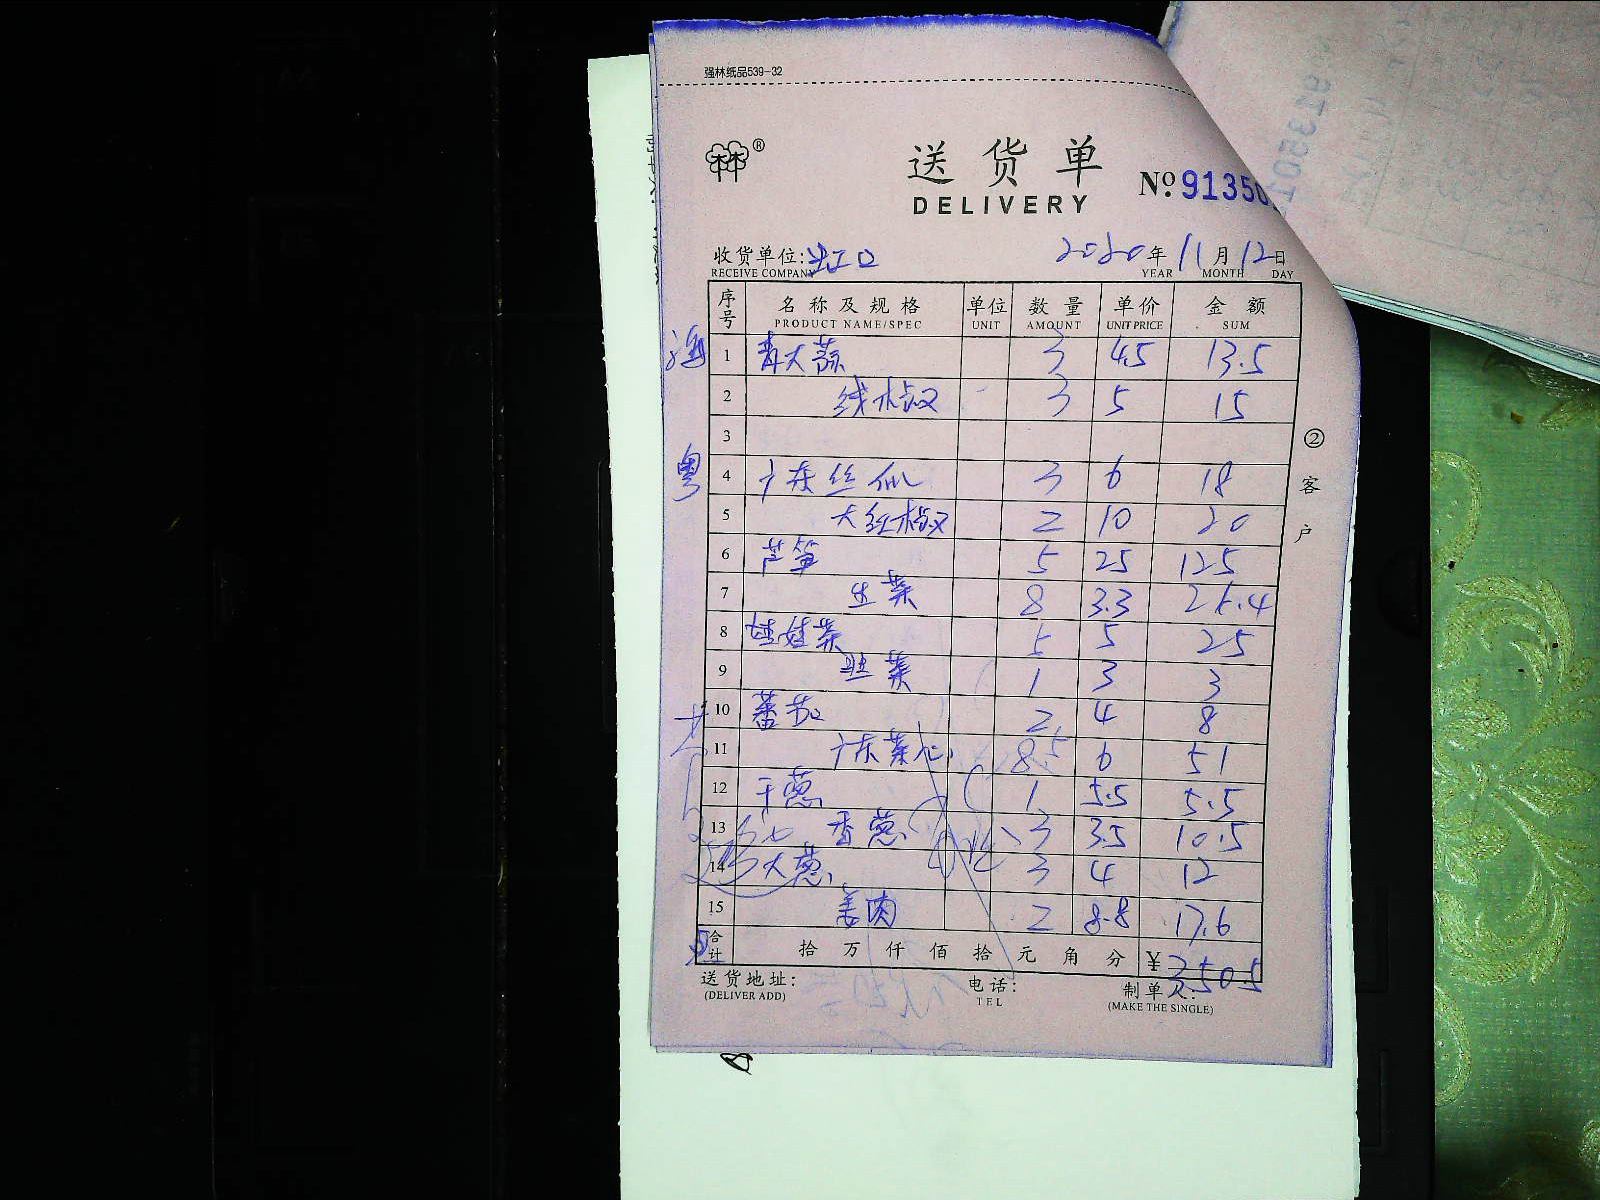 强林纸品539-32
林林®
送货单
DELIVERY
No. 91350
收货单位: 出江口 2020年11月12日
RECEIVE COMPANY YEAR MONTH DAY
序号 名称及规格 单位 数量 单价 金额
PRODUCT NAME/SPEC UNIT AMOUNT UNIT PRICE SUM
海
1 青大蒜 3 4.5 13.5
2 线椒 3 5 15
3
②客户
粤
4 广东丝瓜 3 6 18
5 大红椒 2 10 20
6 芦笋 5 25 125
7 生菜 8 3.3 26.4
8 娃娃菜 5 5 25
9 芥菜 1 3 3
10 蕃茄 2 4 8
11 广东菜心 8.5 6 51
12 干葱 1 5.5 5.5
13 香葱 3 3.5 10.5
14 大葱 3 4 12
15 姜肉 2 8.8 17.6
合计 拾 万 仟 佰 拾 元 角 分 ¥350.5
送货地址: 电话: 制单人:
(DELIVER ADD) TEL (MAKE THE SINGLE)